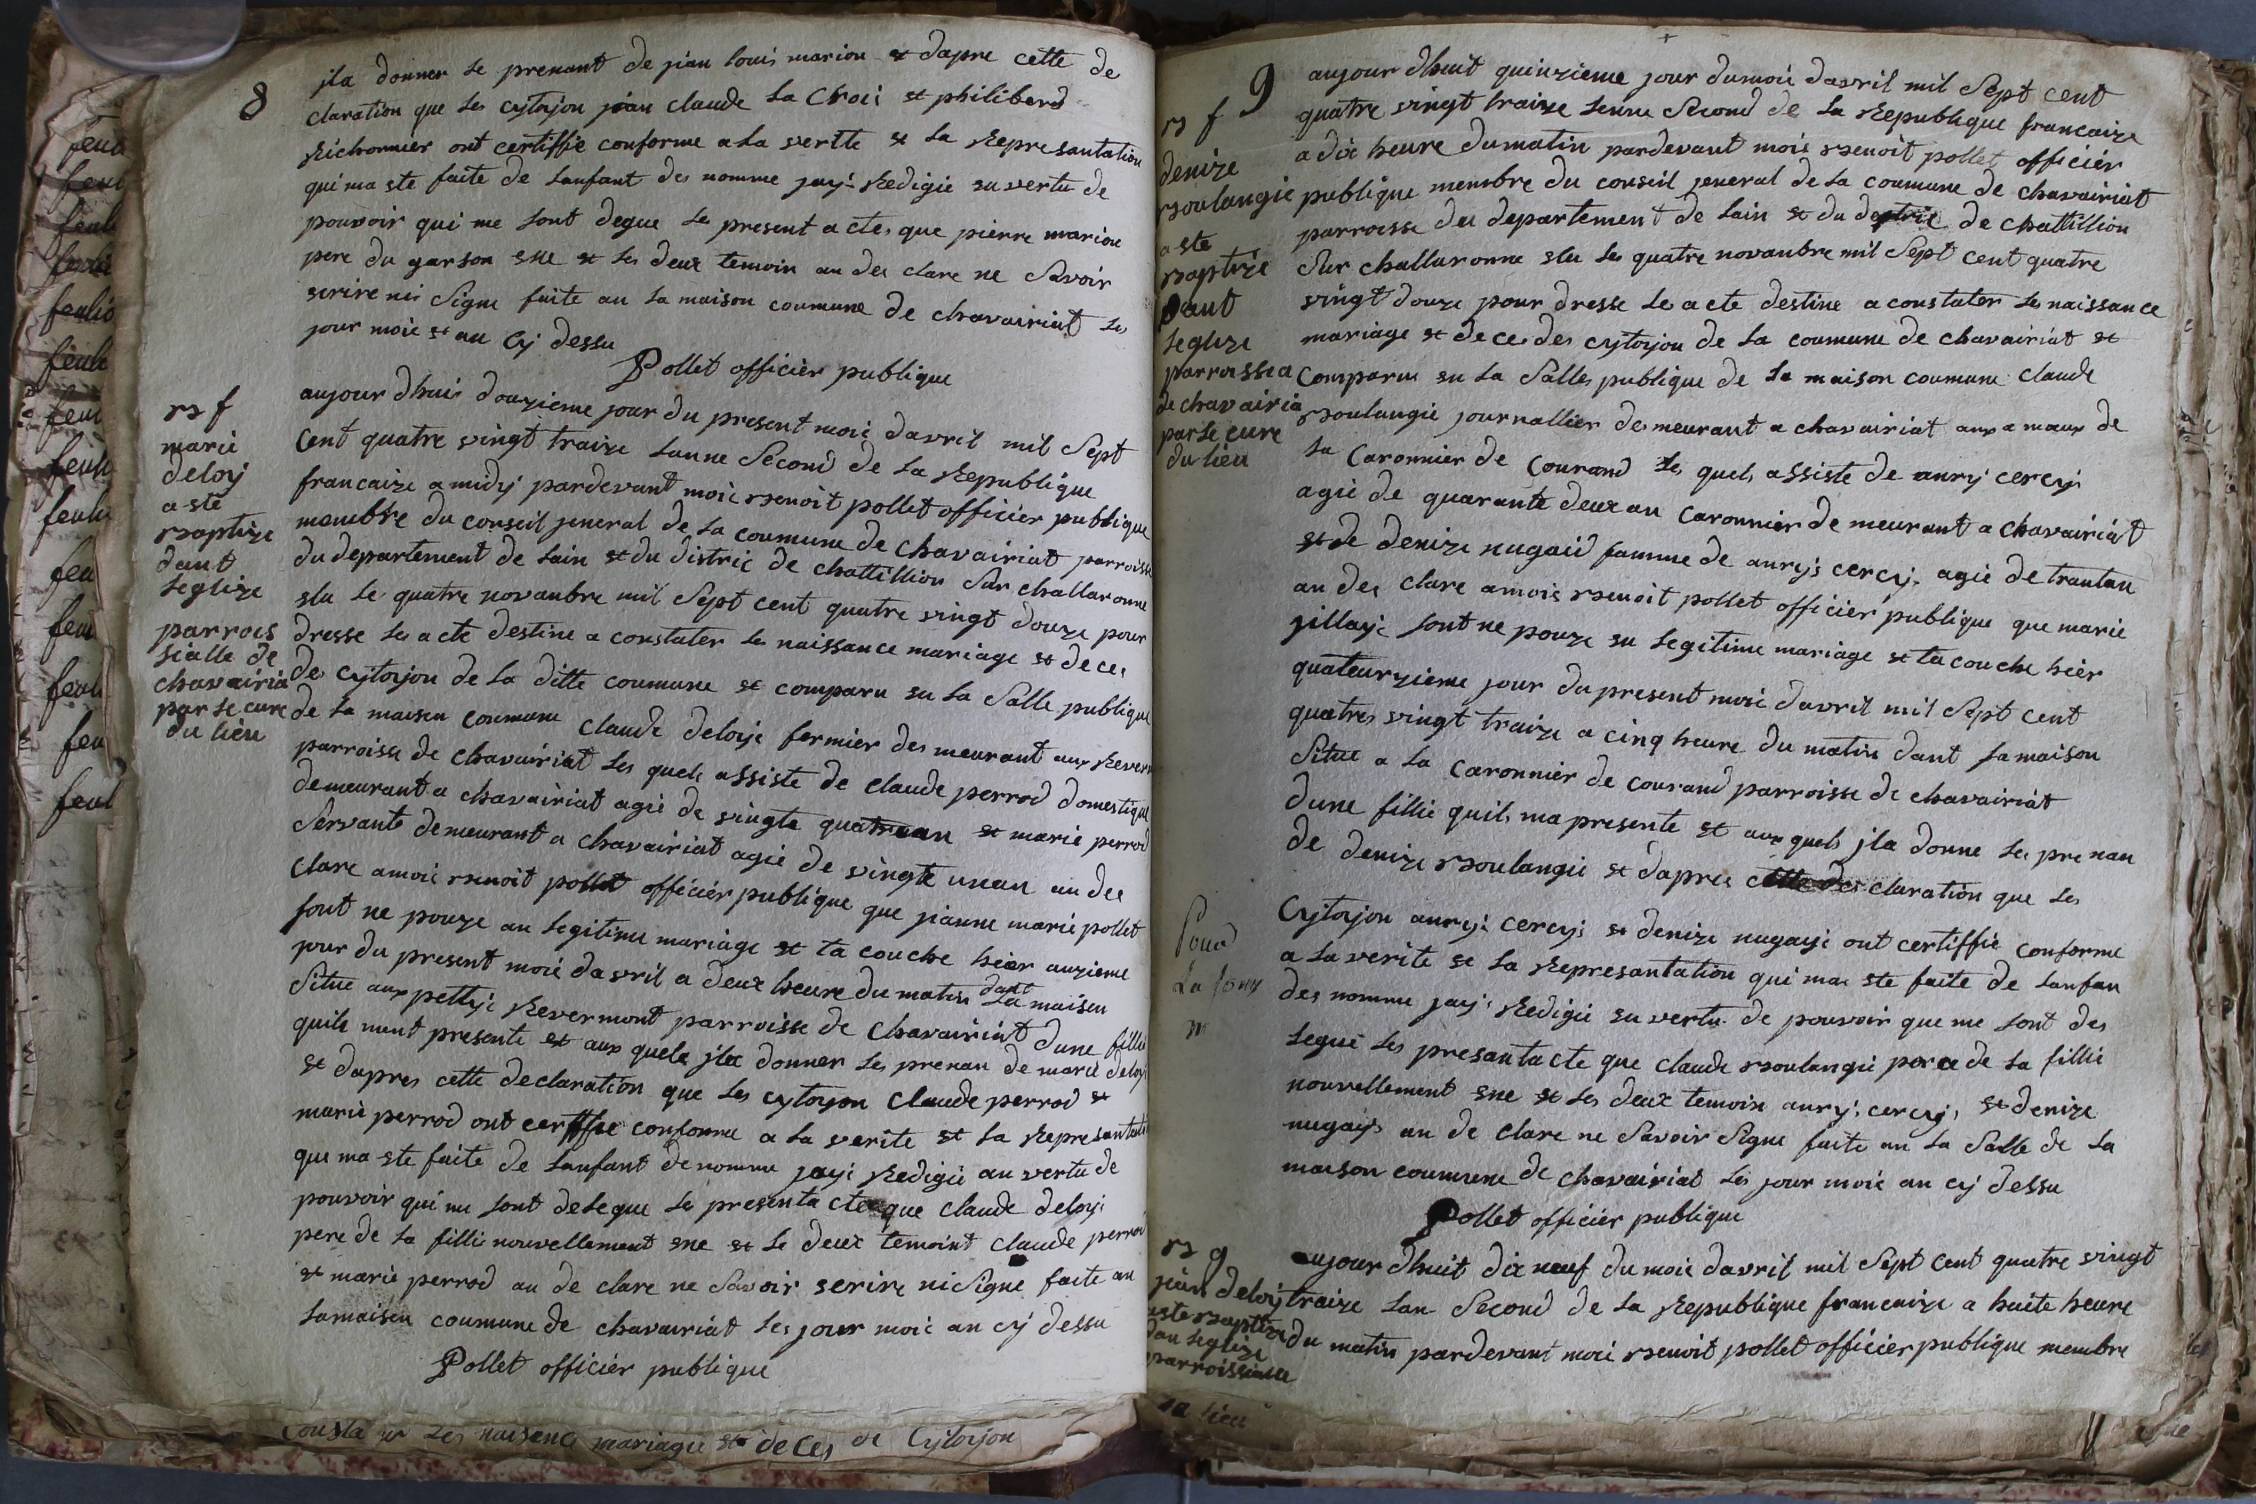 8
jla donner le prenant de jian louis marion et dapre cette de
claration que les cytoyon jean claude la Croi et philiberd
Richonnier ont certiffie conforme a la veritte et la Represantation
qui ma ete faite de lanfant des nomme jayi Redigie en vertu de
pouvoir qui me sont degue le present acte que pierre marion
pere du garson ene et les deux temoin an des clare ne Savoir
ecrire nis Signe faite an la maison coumune de chavairiat les
jour moic et an Cy dessu
Pollet officièr publique
B f
marie
deloy
a ete
Baptize
dant
leglize
parrois
sialle de
chavairia
par le cure
du lieu
aujour dhuis douzieme jour du present moic davril mil Sept
Cent quatre vingt traize lanne Second de la Republique
francaize a midy pardevant moic Benoit pollet officièr publique
mambre du conseil jeneral de la coumune de chavairiat parroisse
du departement de lain et du distric de chattillion Sur challaronne
elu le quatre novanbre mil Sept cent quatre vingt douze pour
dresse les acte destine a constater les naissance mariage et deces
des cytoyon de la ditte coumune et comparu en la Salle publique
de la maison coumune Claude deloyi fermier des meurant aux Rever
parroisse de chavairiat les quels assiste de claude perrod domestique
demeurant a chavairiat agie de vingte quatre an et marie perrod
Servante demeurant a chavairiat agie de vingte unan an des
clare amoic Benoit pollet officièr publique que jianne marie pollet
sont ne pouze an legitime mariage et ta couche hièr anzieme
jour du present moic davril a deux heure du matin dant la maison
Situe aux pettyi Revermont parroisse de chavairiat dune fillie
quils mont presente et aux quels jla donner les prenan de marie deloyi
et dapres cette declaration que les cytoyon Claude perrod et
marie perrod ont certiffie conforme a la verite et la Represantation
que ma ete faite de lanfant denomme jayi Redigie au vertu de
pouvoir qui me sont delegue le presenta cte que claude deloyi
pere de la fillie nouvellement ene et le deux temoint claude perrod
et marie perrod an de clare ne Savoir ecrire ni Signe faite an
lamaison coumune de chavairiat les jour moic an cy dessu
Pollet officièr publique
Consta ter Les naisence mariagie et deces de Cytoyon
9
B f
denize
Boulangie
a ete
Baptize
Dant
leglize
parroissia
de chavairia
par le cure
du lieu
aujour dhuit quinzieme jour dumoic davril mil Sept cent
quatre vingt traize lanne Second de la Republique francaize
a dix heure dumatin pardevant moic Benoit pollet officièr
publique membre du conseil jeneral de la coumune de chavairiat
parroisse des departement de lain et du destric de chattillion
Sur challaronne elu les quatre novanbre mil Sept cent quatre
vingt douze pour dresse le acte destine a constater le naissance
mariage et deces des cytoyon de la coumune de chavairiat et
Comparus en la Salle publique de la maison coumune claude
Boulangie journallier demeurant a chavairiat aux amaux de
la Caronnier de Courand les quels assiste de anryi cercyi
agie de quarante deux an caronnier demeurant a chavairiat
et de denize nugaid famme de anryi cercyi agie de trantan
an des clare amois Benoit pollet officièr publique que marie
jillayi sont ne pouze en legitime mariage et ta couche hièr
quateurzieme jour du present moic davril mil Sept cent
quatres vingt traize a cinq heure du matin dant la maison
Situe a la caronnier de courand parroisse de chavairiat
dune fillie quils ma presente et aux quels jla donne les prenan
de denize Boulangie et dapres cette des claration que les
Cytoyon anryi cercyi et denize nugayi ont certiffie conforme
a la verite et la Represantation qui ma ete faite de lanfan
des nomme jayi Redigie en vertu de pouvoir que me sont des
legue les presantacte que claude Boulangie pere de la fillie
nouvellement ene et les deux temoin anryi cercyi et denize
nugayi an de clare ne Savoir Signe faite an la Salle de la
maison coumune de chavairiat les jour moic an cy dessu
Pollet officièr publique
B g
jian deloy
a ete Baptize
dan leglize
parroissialle
aujour dhuit dix neuf du moic davril mil Sept Cent quatre vingt
traize lan Second de la Republique francaize a huite heure
du matin pardevant moic Benoit pollet officièr publique membre